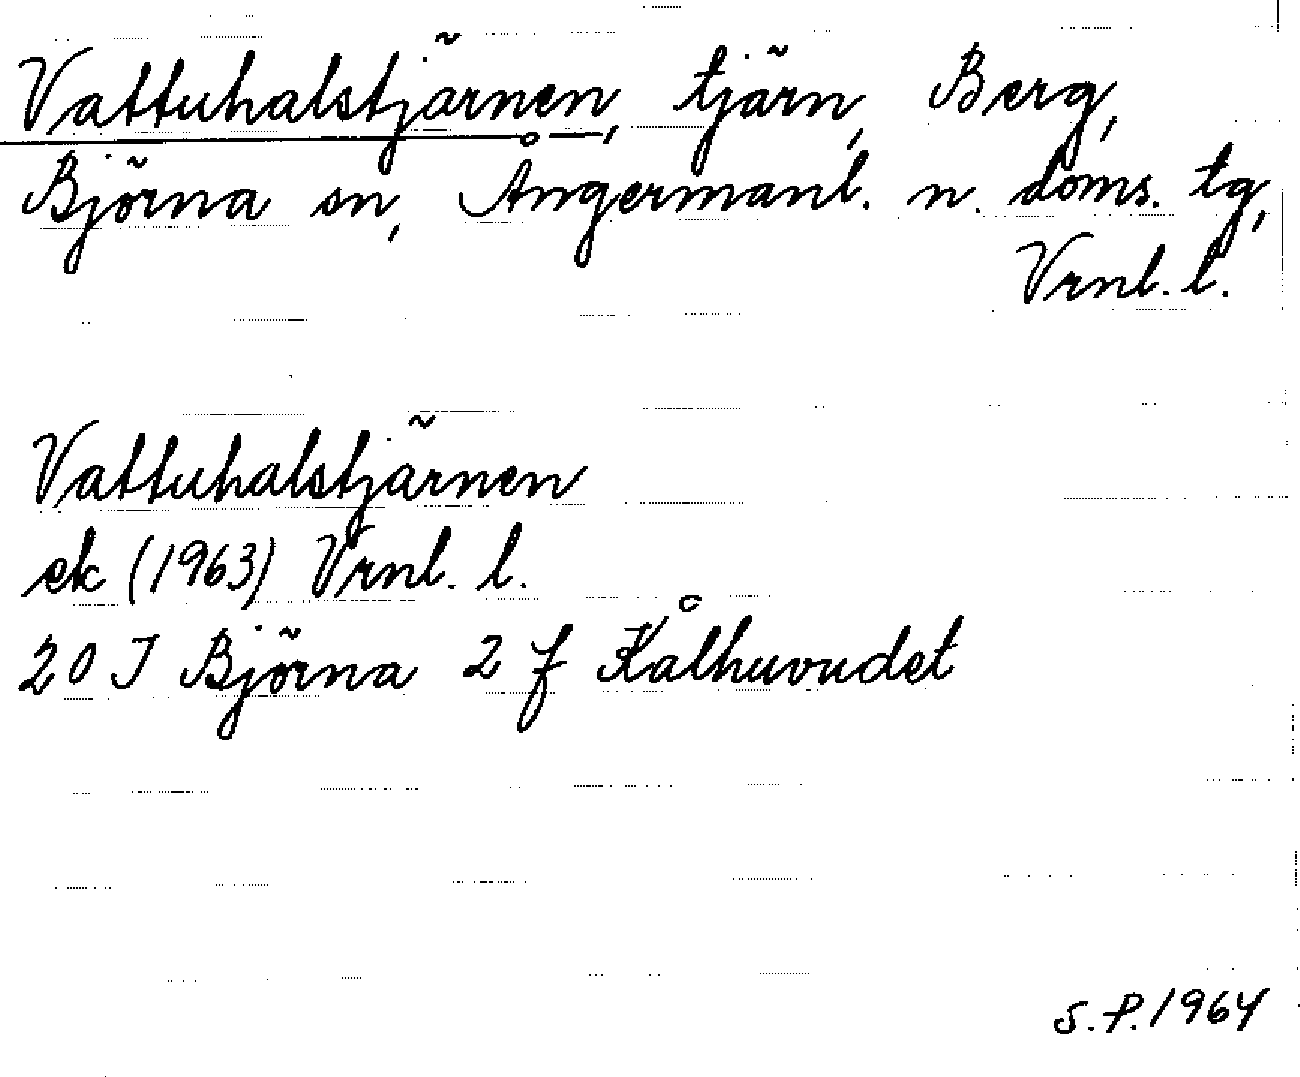 Vattuhalstjärnen, tjärn, Berg,
Björna sn, Ångermanl. n. doms. tg,
Vrnl. l.
Vattuhalstjärnen
ek (1963) Vrnl. l.
20 J Björna 2 f Kålhuvudet
S.P. 1964